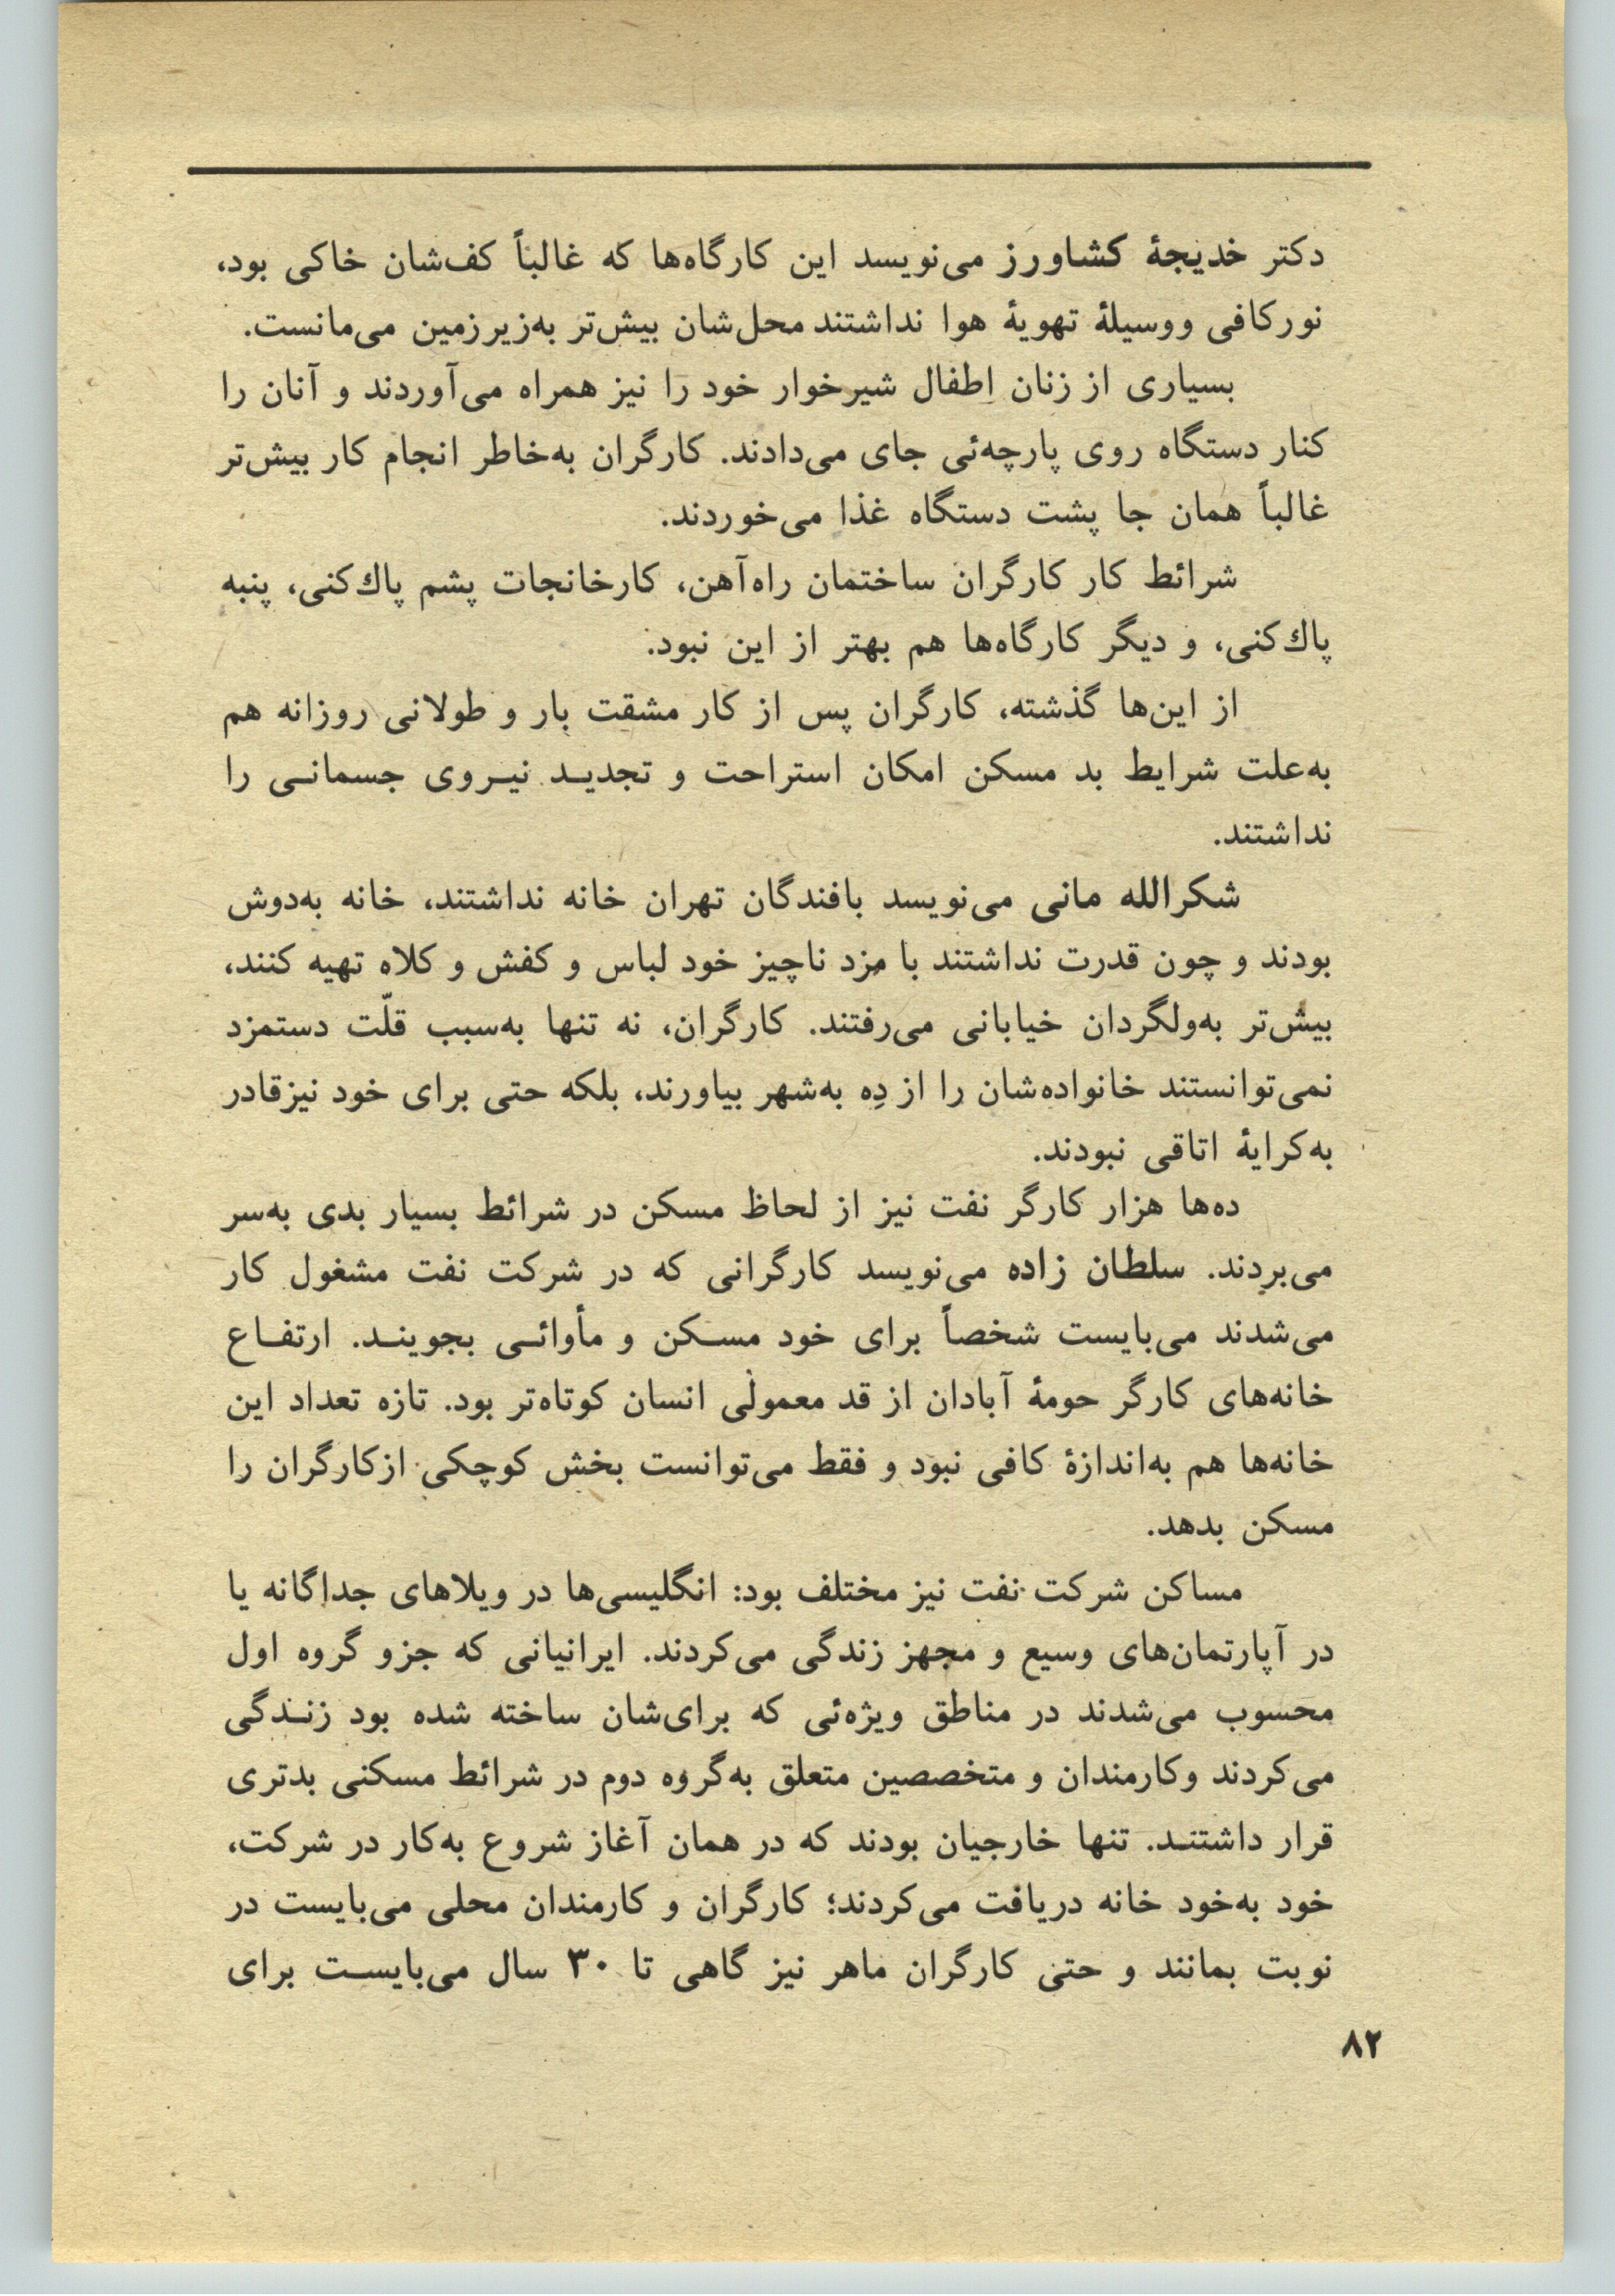 دکتر خدیجهٔ کشاورز می‌نویسد این کارگاه‌ها که غالباً کف‌شان خاکی بود،
نورکافی ووسیلهٔ تهویهٔ هوا نداشتند محل‌شان بیش‌تر به‌زیرزمین می‌مانست.
بسیاری از زنان اطفال شیرخوار خود را نیز همراه می‌آوردند و آنان را
کنار دستگاه روی پارچه‌ئی جای می‌دادند. کارگران به‌خاطر انجام کار بیش‌تر
غالباً همان جا پشت دستگاه غذا می‌خوردند.
شرائط کار کارگران ساختمان راه‌آهن، کارخانجات پشم پاك‌کنی، پنبه
پاك‌کنی، و دیگر کارگاه‌ها هم بهتر از این نبود.
از این‌ها گذشته، کارگران پس از کار مشقت بار و طولانی روزانه هم
به‌علت شرایط بد مسکن امکان استراحت و تجدیـد نیـروی جسمانـی را
نداشتند.
شکرالله مانی می‌نویسد بافندگان تهران خانه نداشتند، خانه به‌دوش
بودند و چون قدرت نداشتند با مزد ناچیز خود لباس و کفش و کلاه تهیه کنند،
بیش‌تر به‌ولگردان خیابانی می‌رفتند. کارگران، نه تنها به‌سبب قلّت دستمزد
نمی‌توانستند خانواده‌شان را از دِه به‌شهر بیاورند، بلکه حتی برای خود نیزقادر
به‌کرایهٔ اتاقی نبودند.
ده‌ها هزار کارگر نفت نیز از لحاظ مسکن در شرائط بسیار بدی به‌سر
می‌بردند. سلطان زاده می‌نویسد کارگرانی که در شرکت نفت مشغول کار
می‌شدند می‌بایست شخصاً برای خود مسـکن و مأوائـی بجوینـد. ارتفـاع
خانه‌های کارگر حومهٔ آبادان از قد معمولی انسان کوتاه‌تر بود. تازه تعداد این
خانه‌ها هم به‌اندازهٔ کافی نبود و فقط می‌توانست بخش کوچکی ازکارگران را
مسکن بدهد.
مساکن شرکت نفت نیز مختلف بود: انگلیسی‌ها در ویلاهای جداگانه یا
در آپارتمان‌های وسیع و مجهز زندگی می‌کردند. ایرانیانی که جزو گروه اول
محسوب می‌شدند در مناطق ویژه‌ئی که برای‌شان ساخته شده بود زنـدگی
می‌کردند وکارمندان و متخصصین متعلق به‌گروه دوم در شرائط مسکنی بدتری
قرار داشتنـد. تنها خارجیان بودند که در همان آغاز شروع به‌کار در شرکت،
خود به‌خود خانه دریافت می‌کردند؛ کارگران و کارمندان محلی می‌بایست در
نوبت بمانند و حتی کارگران ماهر نیز گاهی تا ۳۰ سال می‌بایسـت برای
۸۲